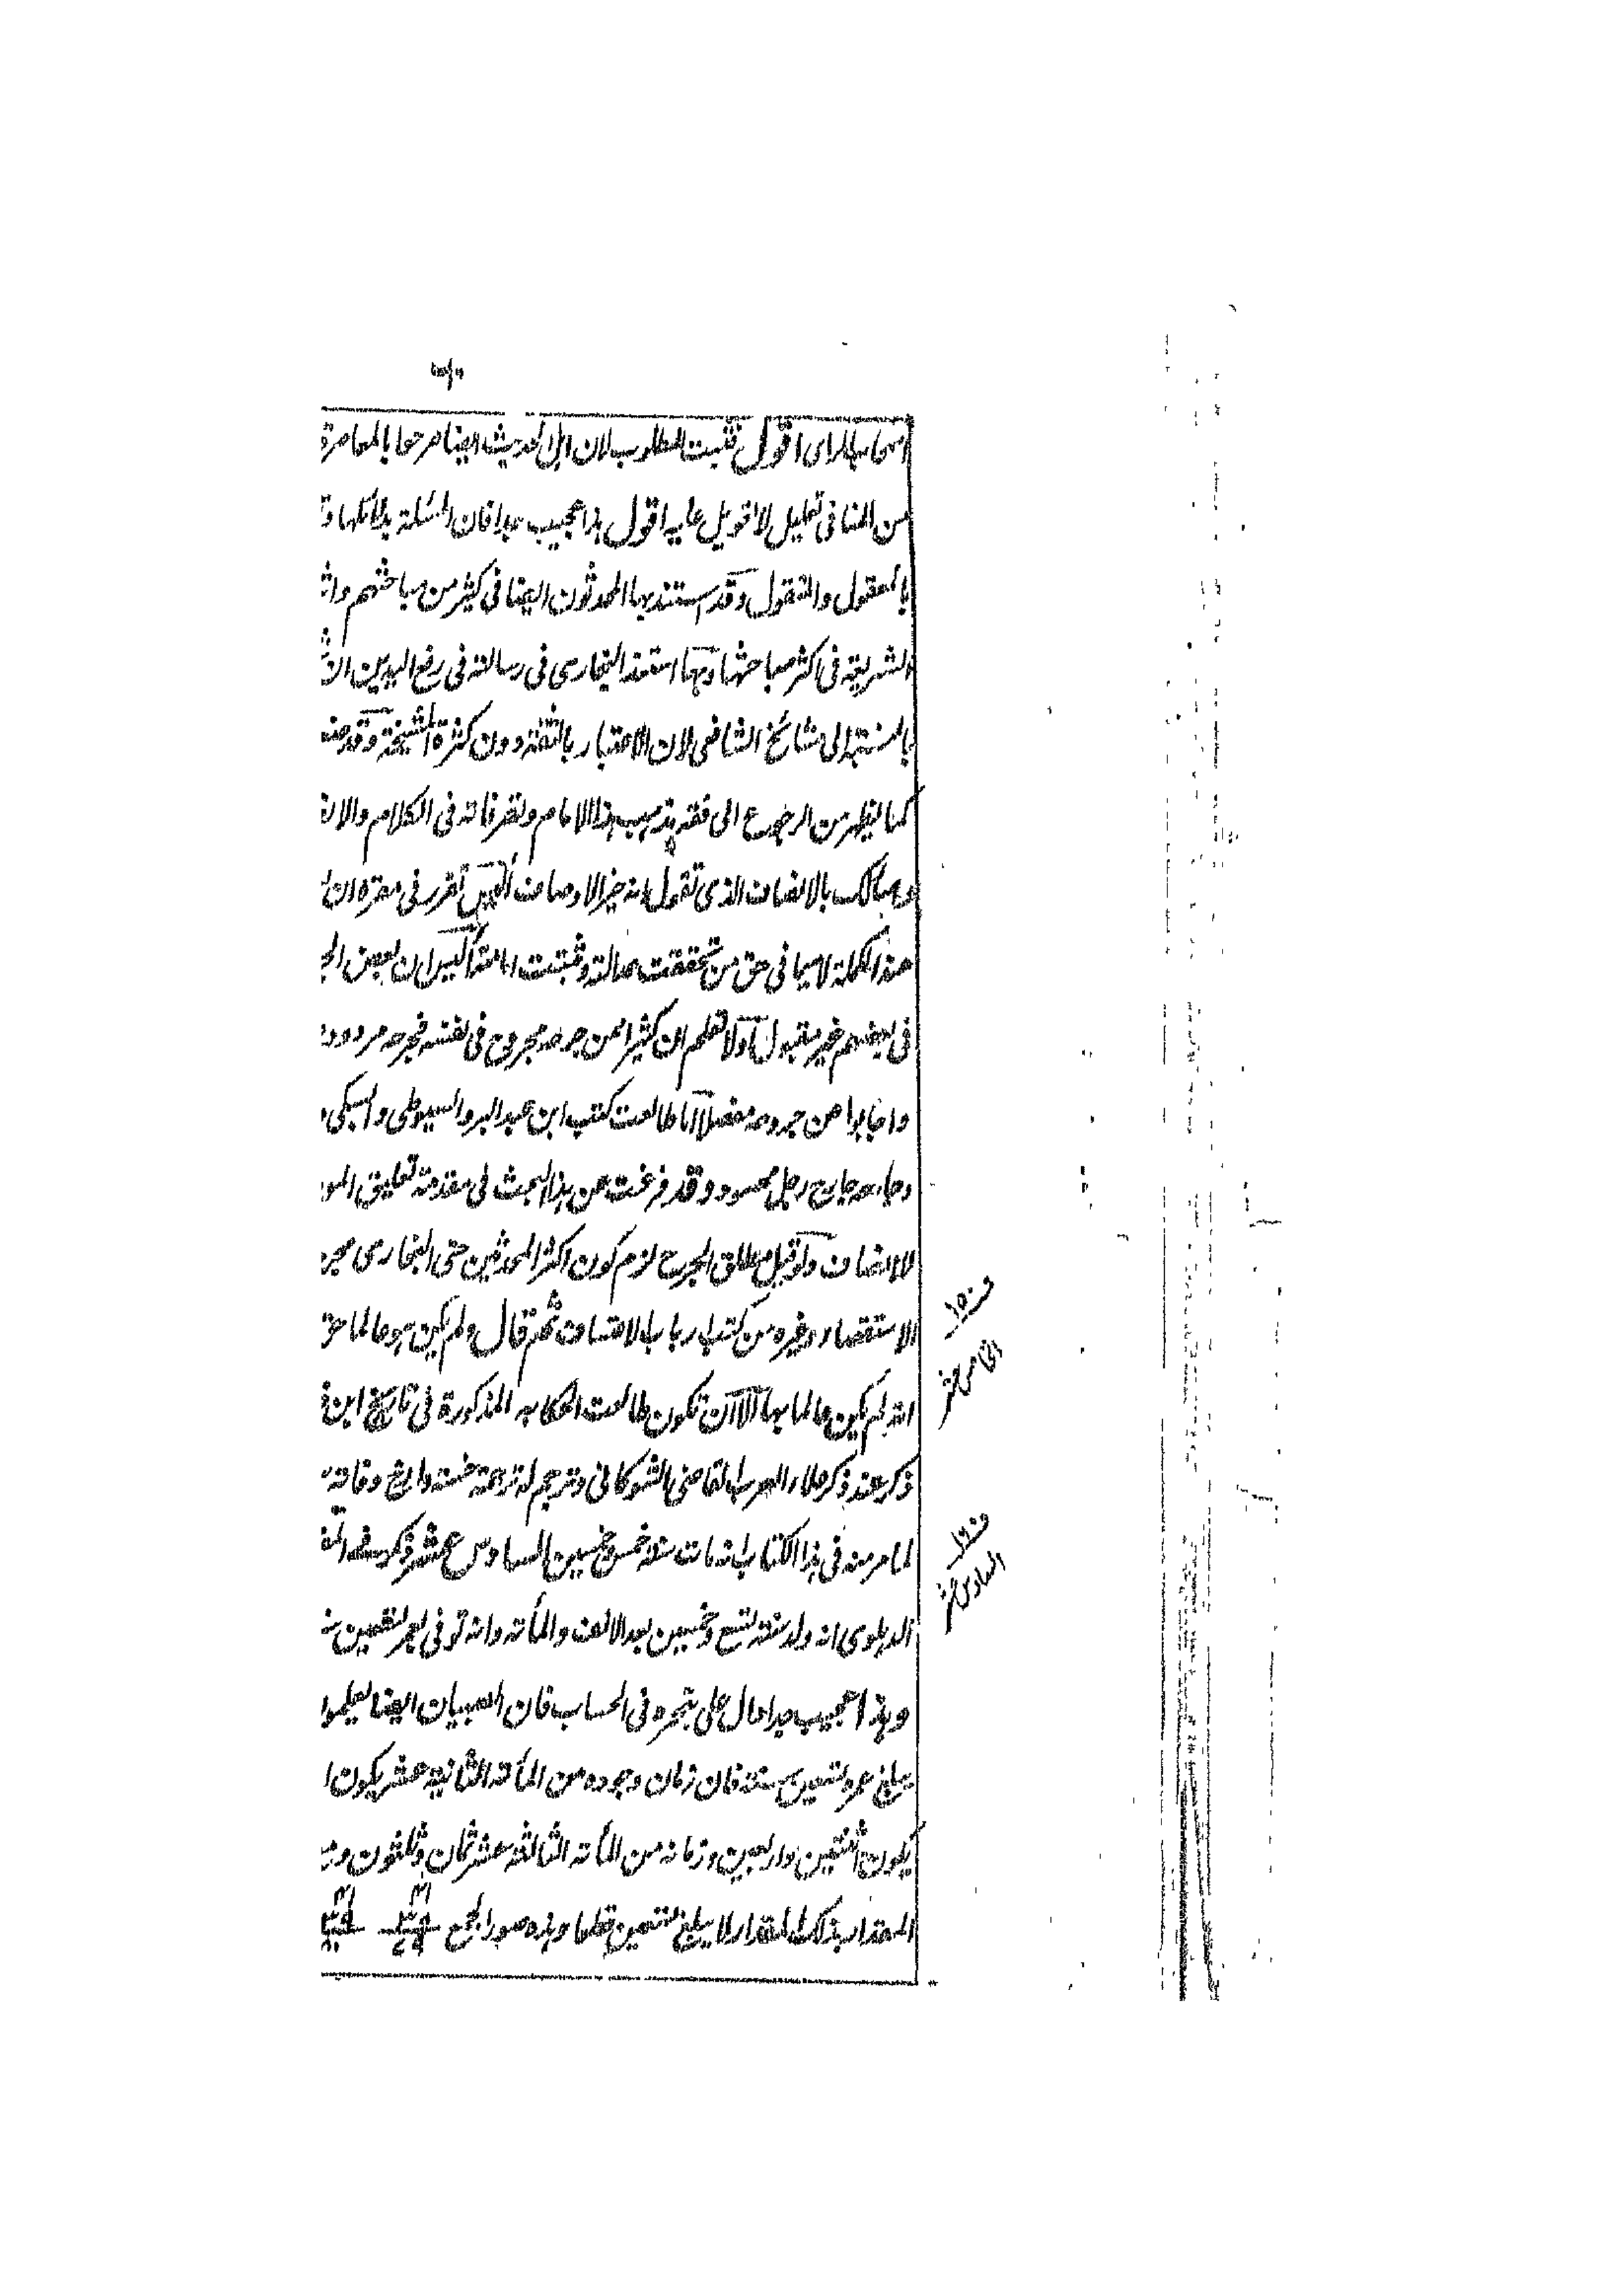 اصحاب الراى اقول فثبت المطلوب لان اهل الحديث ايضا صرحوا بالمعاصرة
من المنافى تعليل لا تعويل عليه اقول هذا عجيب جدا فان المسئلة بدلائلها
بالمعقول والمنقول وقد استند بها المحدثون ايضا فى كثير من مباحثهم
الشريفة فى اكثر مباحثها وبها استند البخارى فى رسالته فى رفع اليدين
بالنسبة الى مشائخ الشافعى لان الاعتبار بالثقة دون كثرة المشيخة وقد
كما يظهر من الرجوع الى فقه مذهب هذا الامام وتفرقاته فى الكلام
بالانصاف الذى تقول انه خير الاوصاف اليس تقرر فى مقره ان
هذا الكملة لا سيما فى حق من تحققت عدالته وثبتت امامته اليس ان بعض
فى بعضهم غير مقبول اولا تعلم ان كثيرا ممن جرحه مجروح فى نفسه فجرحه مردود
واجابوا عن جروحه مفصلا اما طالعت كتب ابن عبد البر والسيوطى والسبكى
رجل محسود وقد فرغت عن هذا البحث فى مقدمة تعليق
للانصاف ولو قبل مطلق الجرح لزم كون اكثر المحدثين حتى البخارى
الاستقصاء وغيره من كتب ارباب الاعتساف ثم قال ولم يكن هو عالما
انه لم يكن عالما بها الا ان تكون طالعت الحكاية المذكورة فى تاريخ ابن
ذكر عند ذكر علماء العرب القاضى الشوكانى وترجم له ترجمة حسنة وارخ وفاته
لما مر منه فى هذا الكتاب انه مات سنة خمس وخمسين السادس عشر ذكر
الدهلوى انه ولد سنة تسع وخمسين بعد الالف والمأته وانه توفى بعمر تسعين
وهذا عجيب جدا دال على تبحره فى الحساب فان الصبيان ايضا يعلموا
يبلغ عمره تسعين سنة فان زمان وجوده من المأته الثانية عشر يكون
يكون اثنتين واربعين وزمانه من المأته الثالثة عشر ثمان وثلثون
المقدار بذلك المقدار لا يبلغ تسعين قطعا وهذه صور الجمع
الخامس عشر
السادس عشر